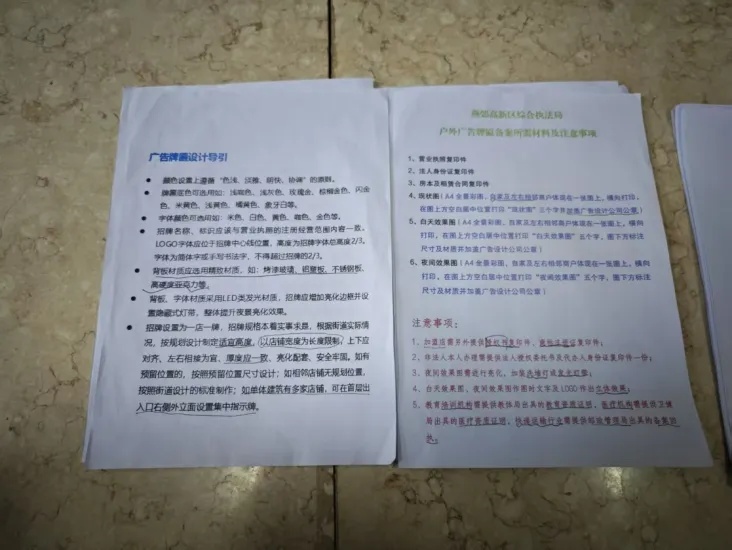 广告牌匾设计导引
● 颜色设置上遵循“色浅、淡雅、明快、协调”的原则。
● 牌匾底色可选用如：浅咖色、浅灰色、玫瑰金、棕榈金色、闪金
色、米黄色、浅黄色、橘黄色、象牙白等。
● 字体颜色可选用如：米色、白色、黄色、咖色、金色等。
● 招牌名称、标识应该与营业执照的注册经营范围内容一致、
LOGO字体应位于招牌中心线位置，高度为招牌字体总高度2/3。
字体为简体字或手写书法字，不得超过招牌的2/3。
● 背板材质应选用精致材质，如：烤漆玻璃、铝塑板、不锈钢板、
高硬度亚克力等。
● 背板，字体材质采用LED类发光材质，招牌应增加亮化边框并设
置隐藏式灯带，整体提升夜景亮化效果。
● 招牌设置为一店一牌，招牌规格本着实事求是，根据街道实际情
况，按规划设计制定适宜高度，以店铺宽度为长度限制，上下应
对齐、左右相接为宜、厚度应一致、亮化配套、安全牢固。如有
预留位置的，按照预留位置尺寸设计；如相邻店铺无规划位置，
按照街道设计的标准制作；如单体建筑有多家店铺，可在首层出
入口右侧外立面设置集中指示牌。
燕郊高新区综合执法局
户外广告牌匾备案所需材料及注意事项
1、营业执照复印件
2、法人身份证复印件
3、房本及租赁合同复印件
4、现状图（A4 全景彩图，自家及左右相邻商户体现在一张图上，横向
打印，在图上方空白居中位置打印“现状图”三个字并加盖广告设计公司公章）
5、白天效果图（A4 全景彩图，自家及左右相邻商户体现在一张图上，横向
打印，在图上方空白居中位置打印“白天效果图”五个字，图下方标注
尺寸及材质并加盖广告设计公司公章）
6、夜间效果图（A4 全景彩图，自家及左右相邻商户体现在一张图上，横向
打印，在图上方空白居中位置打印“夜间效果图”五个字，图下方标注尺
寸及材质并加盖广告设计公司公章）
注意事项：
1、加盟店需另外提供授权书复印件、商标注册证复印件。
2、非法人本人办理需提供法人授权委托书及代办人身份证复印件一份；
3、夜间效果图需进行亮化，加装
4、白天效果图、夜间效果图作图时文字及LOGO作出
5、教育培训机构需提供教体局出具的教育资质证明、医疗机构需提供卫健
局出具的医疗资质证明、快递运输行业需提供邮政管理局出具的备案回
执。